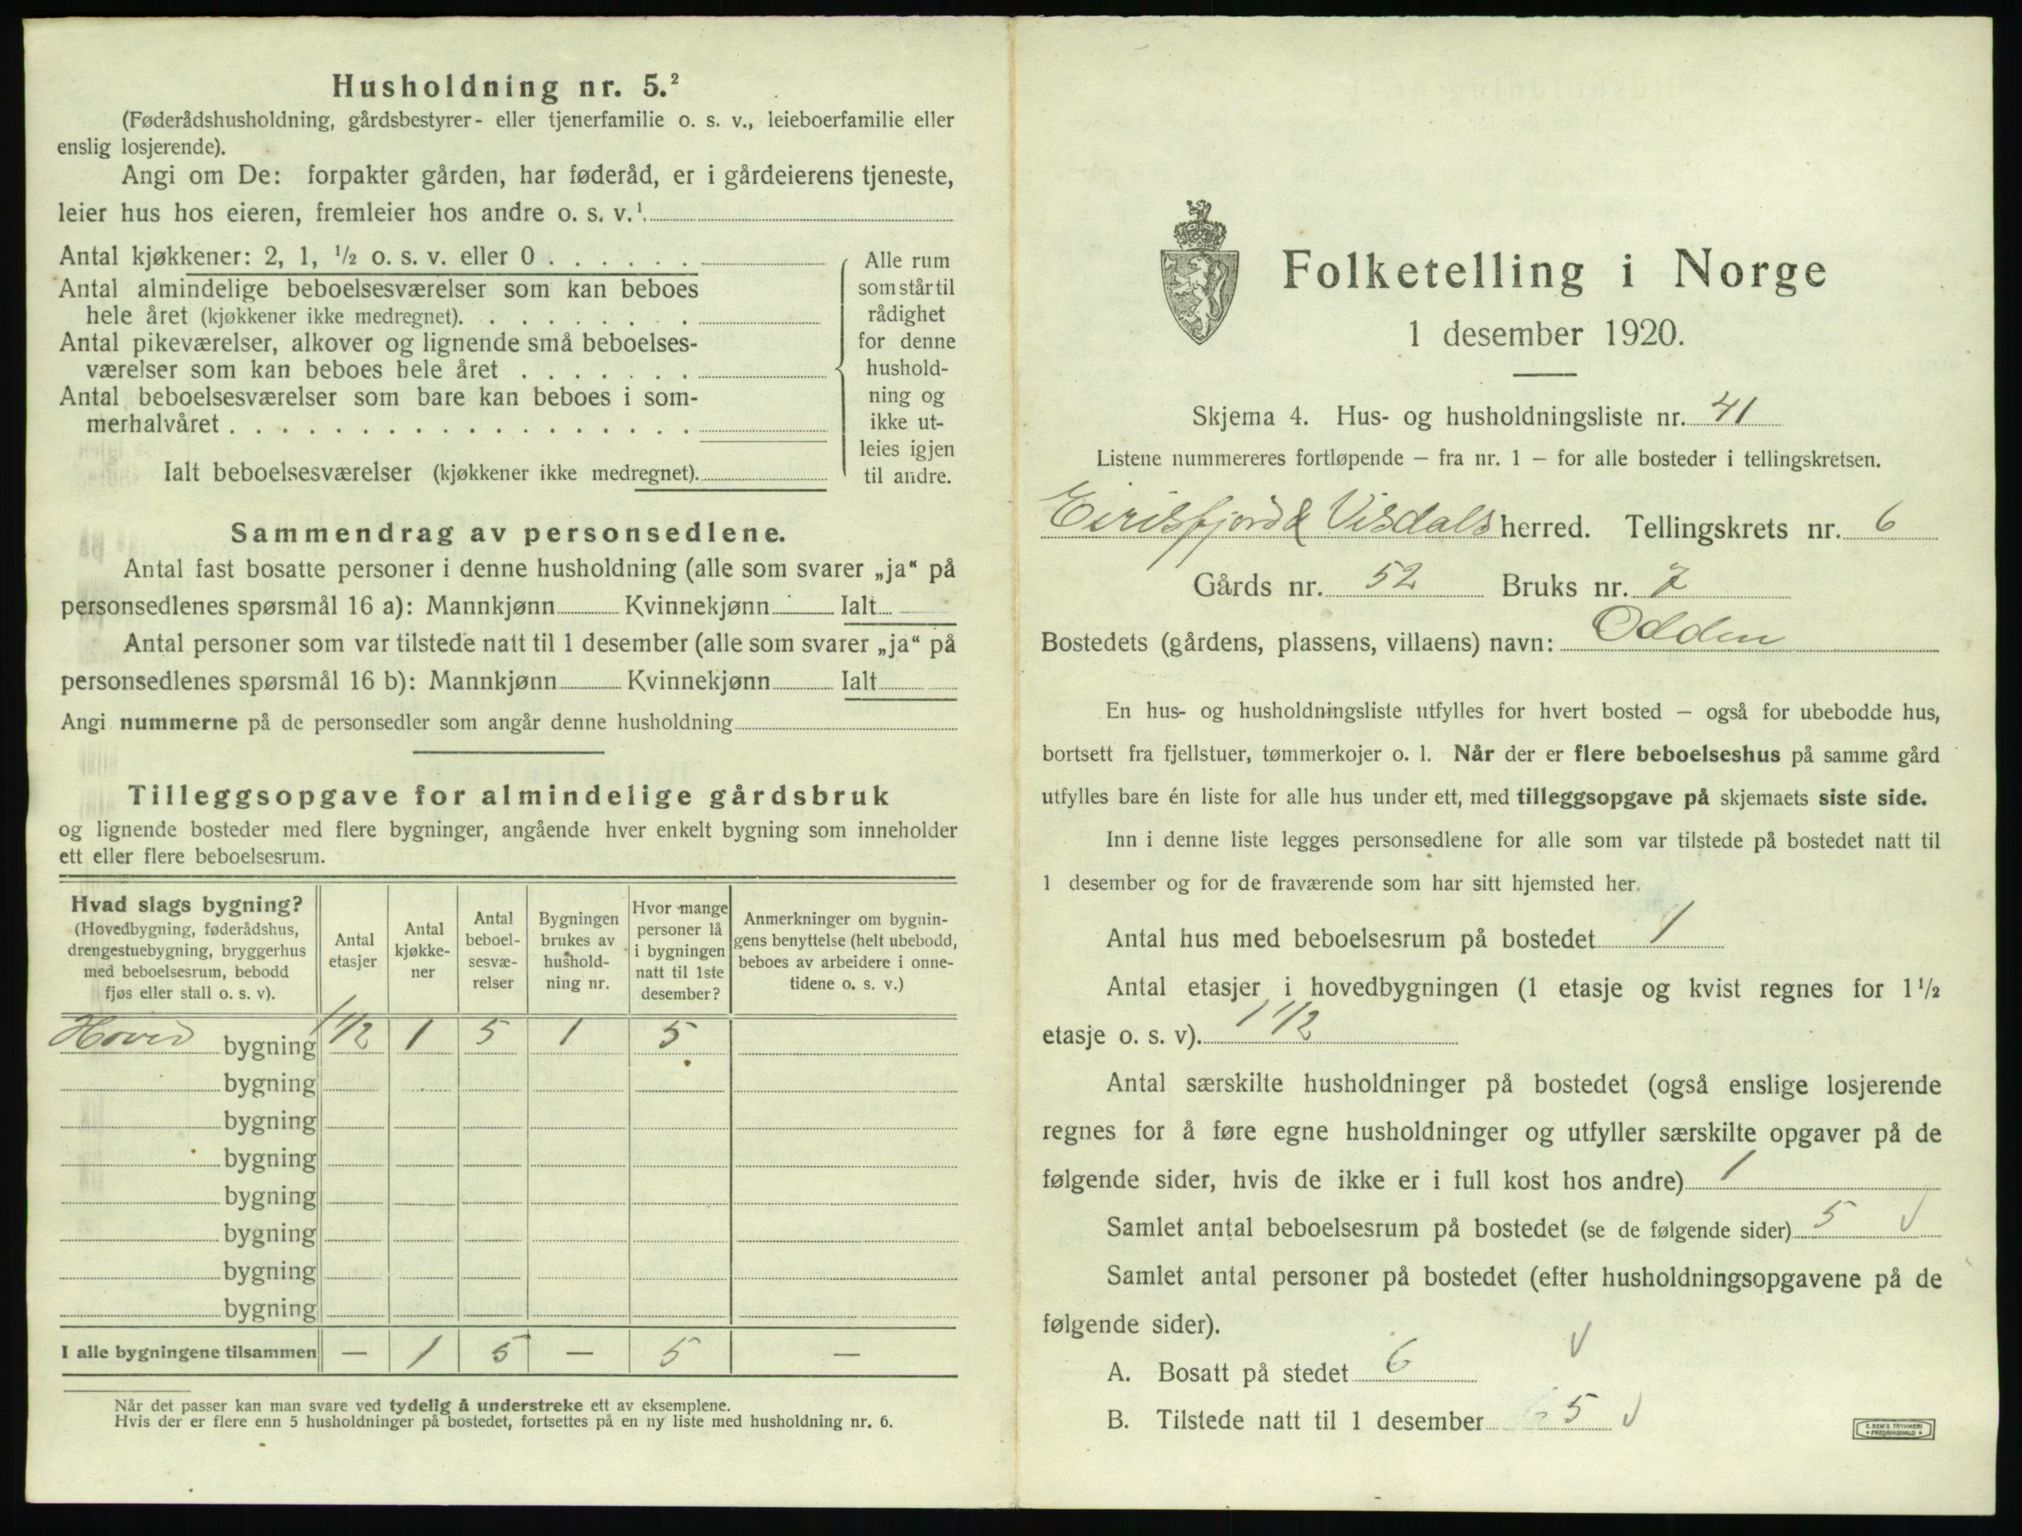 Husholdning nr. 5.²
(Føderådshusholdning, gårdsbestyrer- eller tjenerfamilie o. s. v., leieboerfamilie eller
enslig losjerende).
Angi om De: forpakter gården, har føderåd, er i gårdeierens tjeneste,
leier hus hos eieren, fremleier hos andre o. s. v.¹
Antal kjøkkener: 2, 1, ½ o. s. v. eller 0
Antal almindelige beboelsesværelser som kan beboes
hele året (kjøkkener ikke medregnet).
Antal pikeværelser, alkover og lignende små beboelses-
værelser som kan beboes hele året
Antal beboelsesværelser som bare kan beboes i som-
merhalvåret
Ialt beboelsesværelser (kjøkkener ikke medregnet).
Alle rum
som står til
rådighet
for denne
hushold-
ning og
ikke ut-
leies igjen
til andre.
Sammendrag av personsedlene.
Antal fast bosatte personer i denne husholdning (alle som svarer „ja“ på
personsedlenes spørsmål 16 a): Mannkjønn Kvinnekjønn Ialt
Antal personer som var tilstede natt til 1 desember (alle som svarer „ja“ på
personsedlenes spørsmål 16 b): Mannkjønn Kvinnekjønn Ialt
Angi nummerne på de personsedler som angår denne husholdning
Tilleggsopgave for almindelige gårdsbruk
og lignende bosteder med flere bygninger, angående hver enkelt bygning som inneholder
ett eller flere beboelsesrum.
Hvad slags bygning?
(Hovedbygning, føderådshus,
drengestuebygning, bryggerhus
med beboelsesrum, bebodd
fjøs eller stall o. s. v).
Antal
etasjer
Antal
kjøkke-
ner
Antal
beboel-
sesvæ-
relser
Bygningen
brukes av
hushold-
ning nr.
Hvor mange
personer lå
i bygningen
natt til 1ste
desember?
Anmerkninger om bygnin-
gens benyttelse (helt ubebodd,
beboes av arbeidere i onne-
tidene o. s. v.)
Hoved bygning 1½ 1 5 1 5
bygning
bygning
bygning
bygning
bygning
bygning
bygning
I alle bygningene tilsammen — 1 5 — 5 —
Når det passer kan man svare ved tydelig å understreke ett av eksemplene.
Hvis der er flere enn 5 husholdninger på bostedet, fortsettes på en ny liste med husholdning nr. 6.
Folketelling i Norge
1 desember 1920.
Skjema 4. Hus- og husholdningsliste nr. 41
Listene nummereres fortløpende — fra nr. 1 — for alle bosteder i tellingskretsen.
Eirisfjord & Visdals herred. Tellingskrets nr. 6
Gårds nr. 52 Bruks nr. 7
Bostedets (gårdens, plassens, villaens) navn: Odden
En hus- og husholdningsliste utfylles for hvert bosted — også for ubebodde hus,
bortsett fra fjellstuer, tømmerkojer o. l. Når der er flere beboelseshus på samme gård
utfylles bare én liste for alle hus under ett, med tilleggsopgave på skjemaets siste side.
Inn i denne liste legges personsedlene for alle som var tilstede på bostedet natt til
1 desember og for de fraværende som har sitt hjemsted her.
Antal hus med beboelsesrum på bostedet 1
Antal etasjer i hovedbygningen (1 etasje og kvist regnes for 1½
etasje o. s. v). 1½
Antal særskilte husholdninger på bostedet (også enslige losjerende
regnes for å føre egne husholdninger og utfyller særskilte opgaver på de
følgende sider, hvis de ikke er i full kost hos andre) 1
Samlet antal beboelsesrum på bostedet (se de følgende sider) 5 √
Samlet antal personer på bostedet (efter husholdningsopgavene på de
følgende sider).
A. Bosatt på stedet 6 √
B. Tilstede natt til 1 desember 5 √